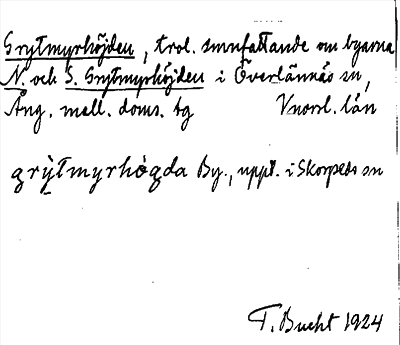 Grytmyrhöjden, trol. smnfattande nu byarna
N. och S. Grytmyrhöjden i Överlännäs sn,
Ång. mell. doms. tg Vnorrl. län
grytmyrhögda By., uppt. i Skorpeds sn
T. Bucht 1924